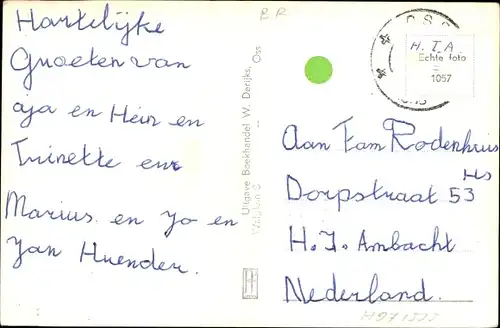 Hartelijke
Groeten van
aja en Hein en
Trinette en
Marius en Jo en
Jan Huender.
BR
Uitgave Boekhandel W. Derijks, Oss
OSS
H.T.A.
Echte foto
=
1057
Aan Fam Rodenhuis
Dorpstraat 53 Hs
H.J. Ambacht
Nederland.